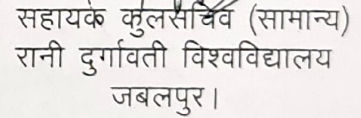 सहायक कुलसचिव (सामान्य)
रानी दुर्गावती विश्वविद्यालय
जबलपुर।